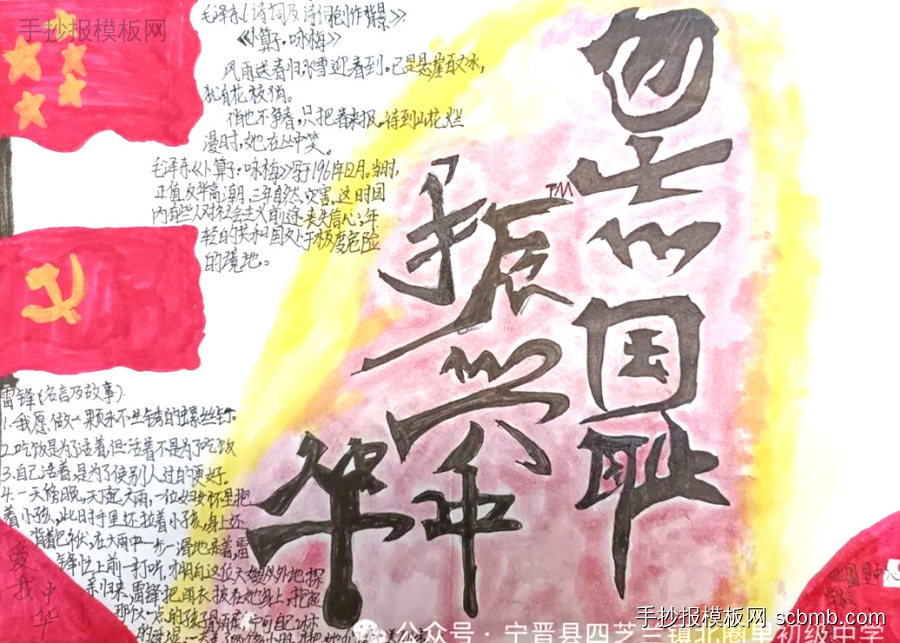 手抄报模板网
毛泽东(诗词及诗词创作背景》
《卜算子·咏梅》
风雨送春归,飞雪迎春到。已是悬崖百丈冰,
犹有花枝俏。
俏也不争春,只把春来报。待到山花烂
漫时,她在丛中笑。
毛泽东《卜算子·咏梅》写于1961年12月。当时,
正值反华高潮,三年自然灾害,这时国
内有些人对社会主义前途丧失信心;年
轻的共和国处于极度危险
的境地。
勿忘国耻
振兴中华
TM
雷锋(名言及故事)
1.我愿做一颗永不生锈的螺丝钉。
2.吃饭是为了活着,但活着不是为了吃饭
3.自己活着,是为了使别人过的更好。
4.一天傍晚,天下起大雨,一位妇女怀里抱
着小孩,此时手里还拉着小孩,身上还
背着包袱,在大雨中一步一滑地走着,雷
锋忙上前一打听,才明白这位大嫂从外地探
亲归来,雷锋把雨衣披在她身上,抱起
那
爱我中华
公众号·宁晋县四芝兰镇北圈里初级中学
手抄报模板网 scbmb.com